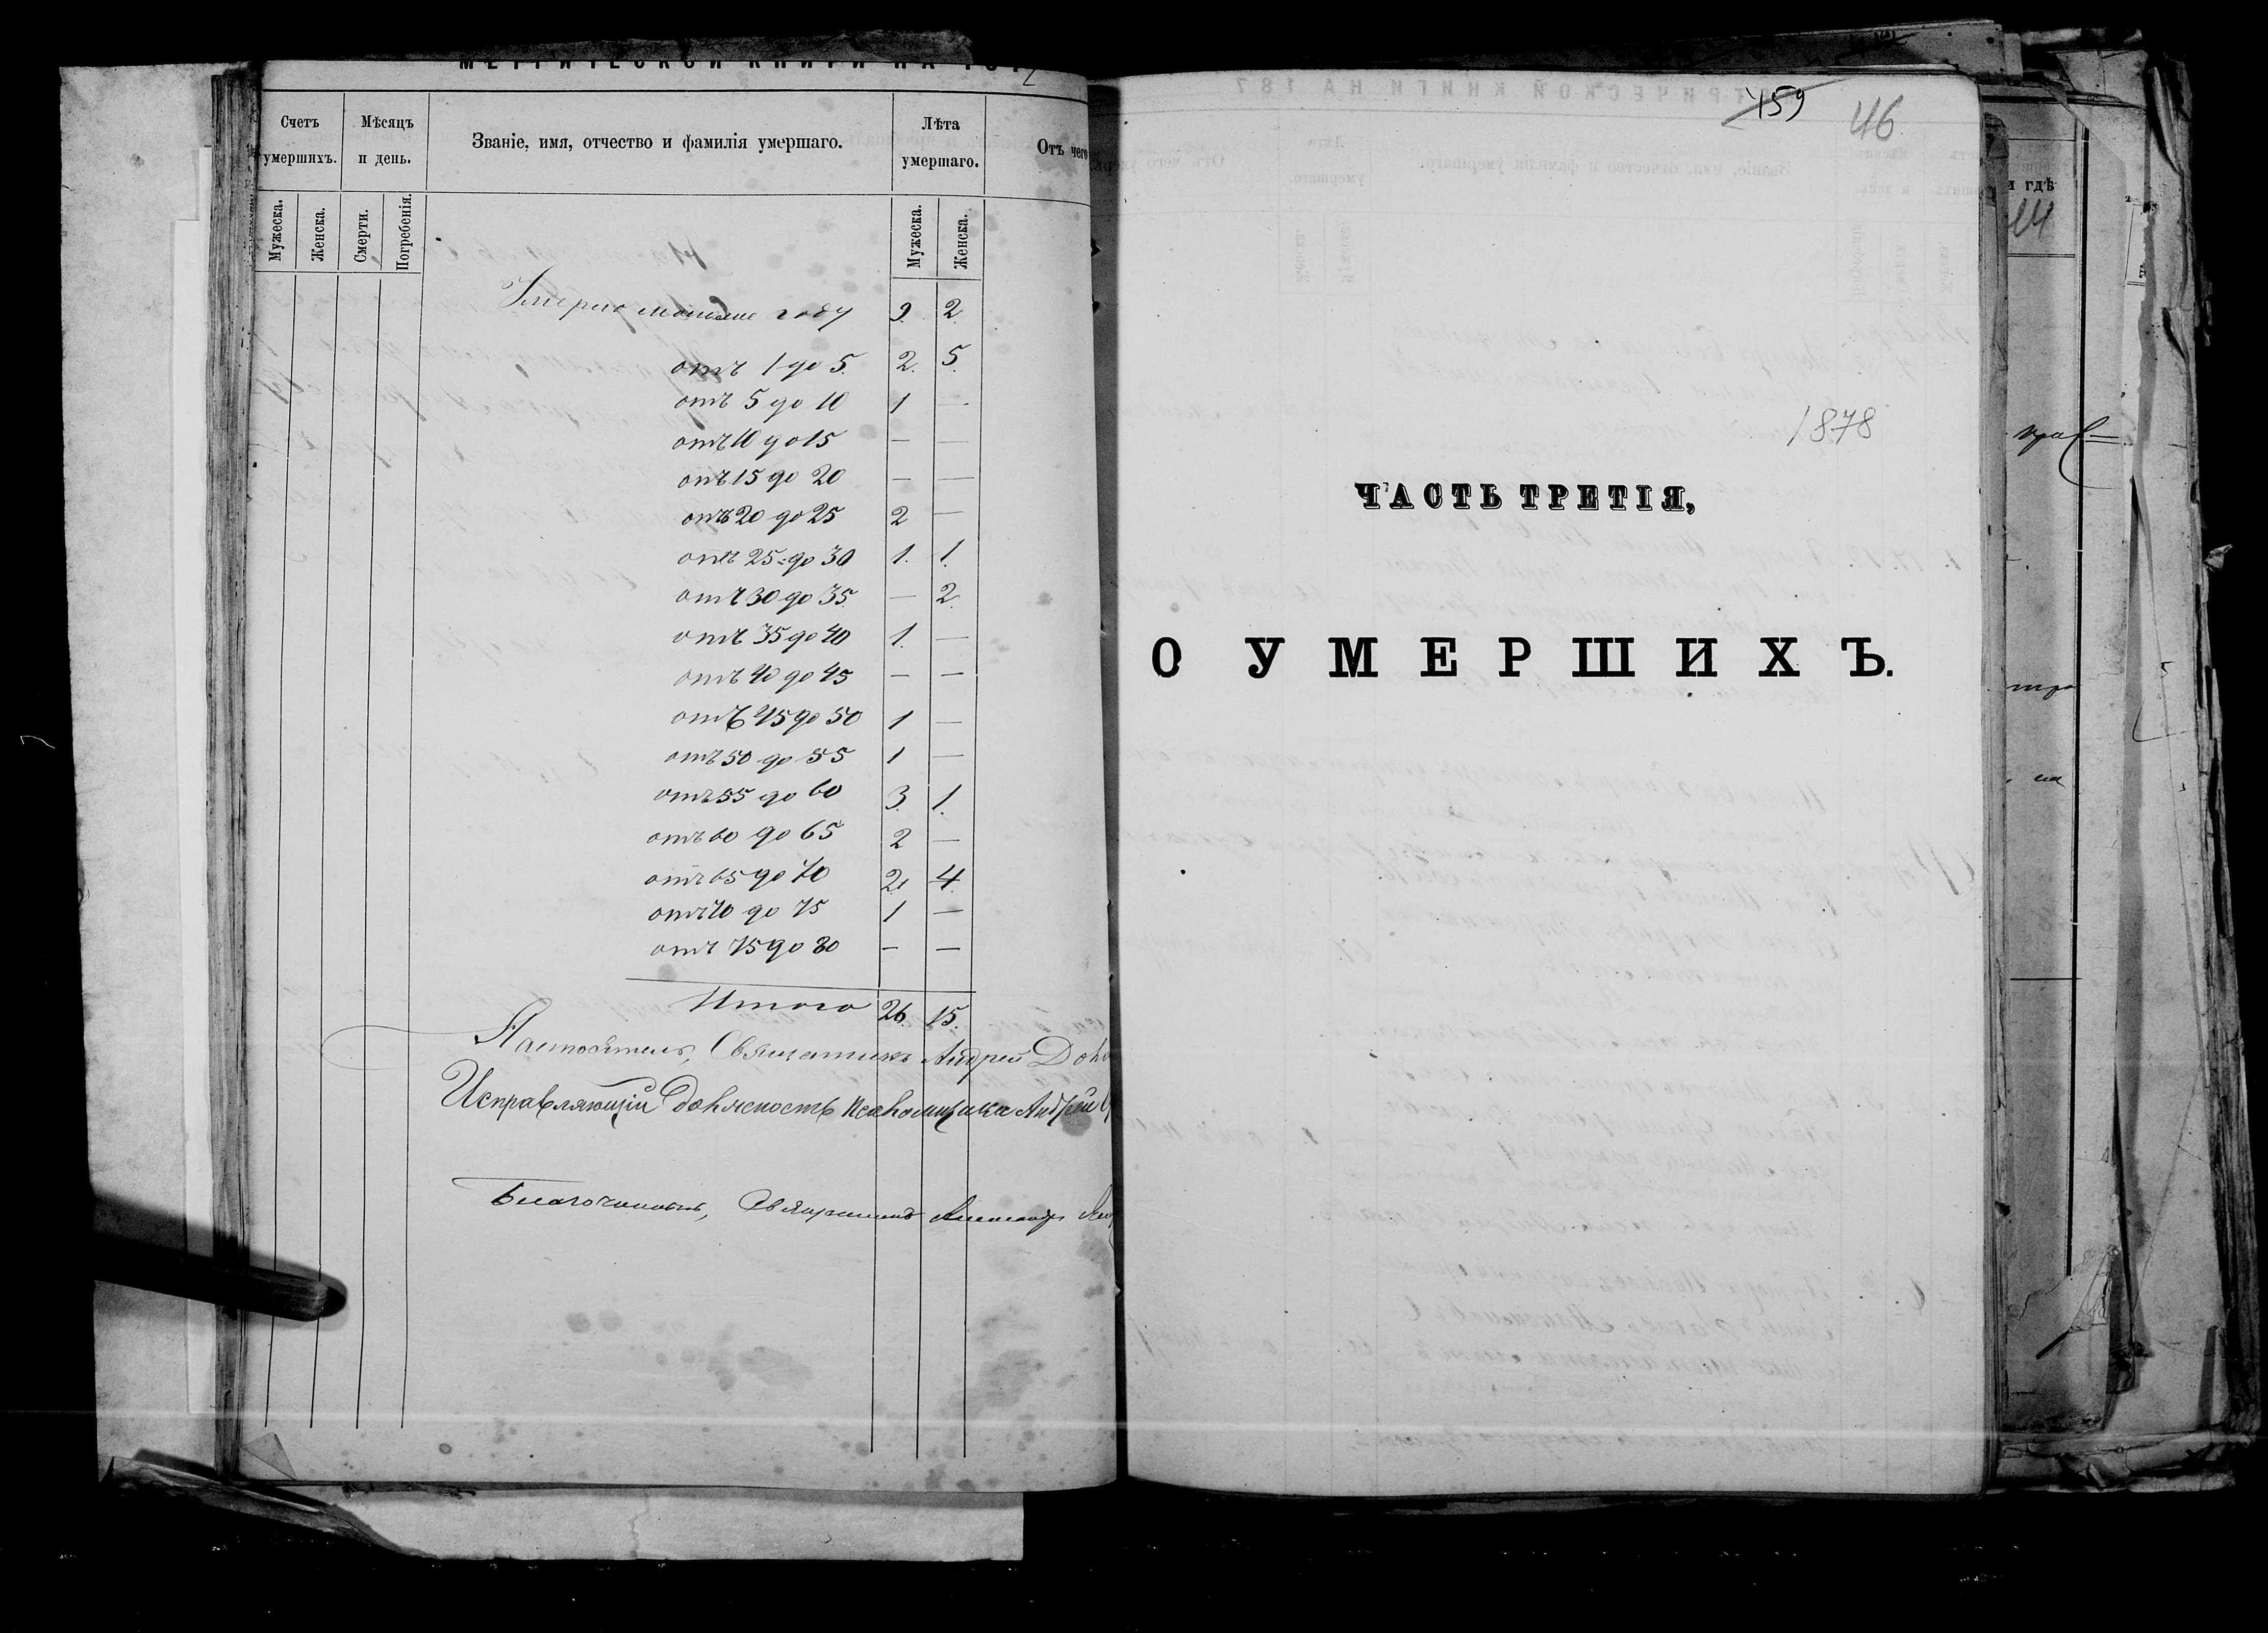 МЕТРИЧЕСКОЙ КНИГИ НА 187
Счетъ умершихъ.
Мѣсяцъ и день.
Званіе, имя, отчество и фамилія умершаго.
Лѣта умершаго.
Отъ чего
Мужеска.
Женска.
Смерти.
Погребенія.
Мужеска.
Женска.
Умерло моложе году 9. 2.
отъ 1 до 5. 2. 5.
отъ 5 до 10 1 —
отъ 10 до 15 — —
отъ 15 до 20 — —
отъ 20 до 25 2 —
отъ 25 до 30 1. 1.
отъ 30 до 35. — 2.
отъ 35 до 40 1. —
отъ 40 до 45 — —
отъ 45 до 50 1 —
отъ 50 до 55 1 —
отъ 55 до 60 3. 1.
отъ 60 до 65 2 —
отъ 65 до 70 2. 4.
отъ 70 до 75 1 —
отъ 75 до 80 — —
Итого 26. 15.
Настоятель, Священникъ Андрей
Исправляющій должность псаломщика Андрей
Благочинный, Священникъ Александръ
159
46
1878
ЧАСТЬ ТРЕТІЯ,
О УМЕРШИХЪ.
и гдѣ